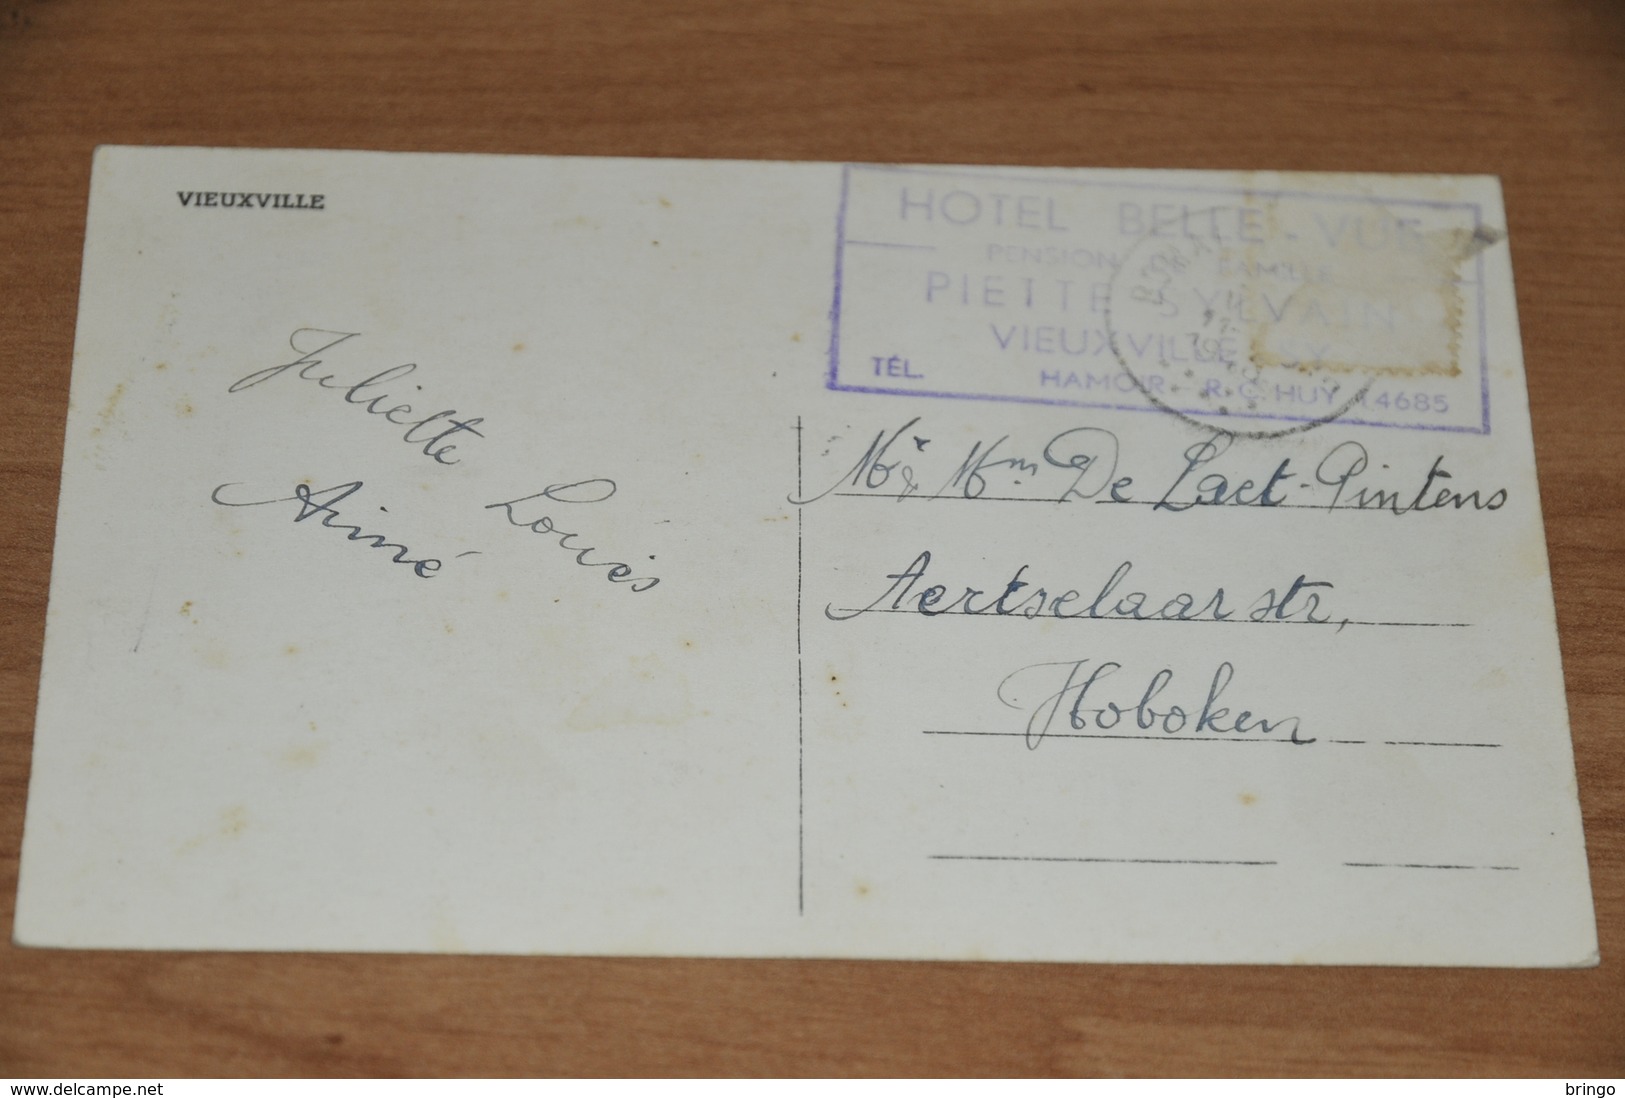 VIEUXVILLE
HOTEL BELLE-VUE
PENSION DE FAMILLE
PIETTE SYLVAIN
VIEUXVILLE SY
TÉL. HAMOIR - R.C. HUY 14685
Juliette Louis
Aimé
Mr & Mm De Laet-Pintens
Aertselaarstr,
Hoboken
www.delcampe.net
bringo